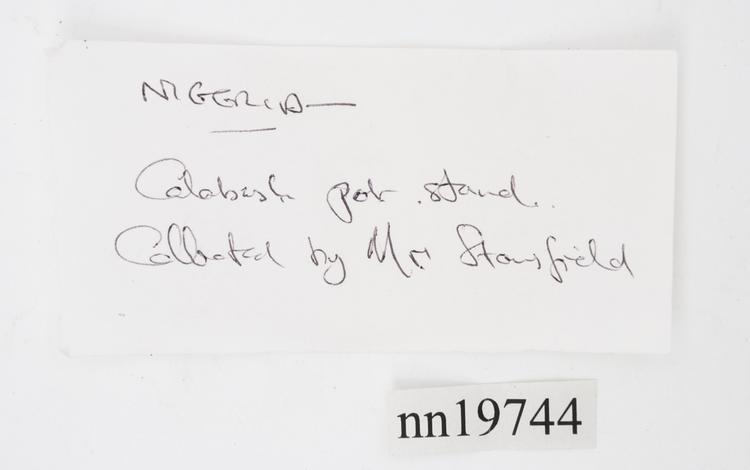 NIGERIA—
Calabash pot stand.
Collected by Mr Stansfield
nn19744